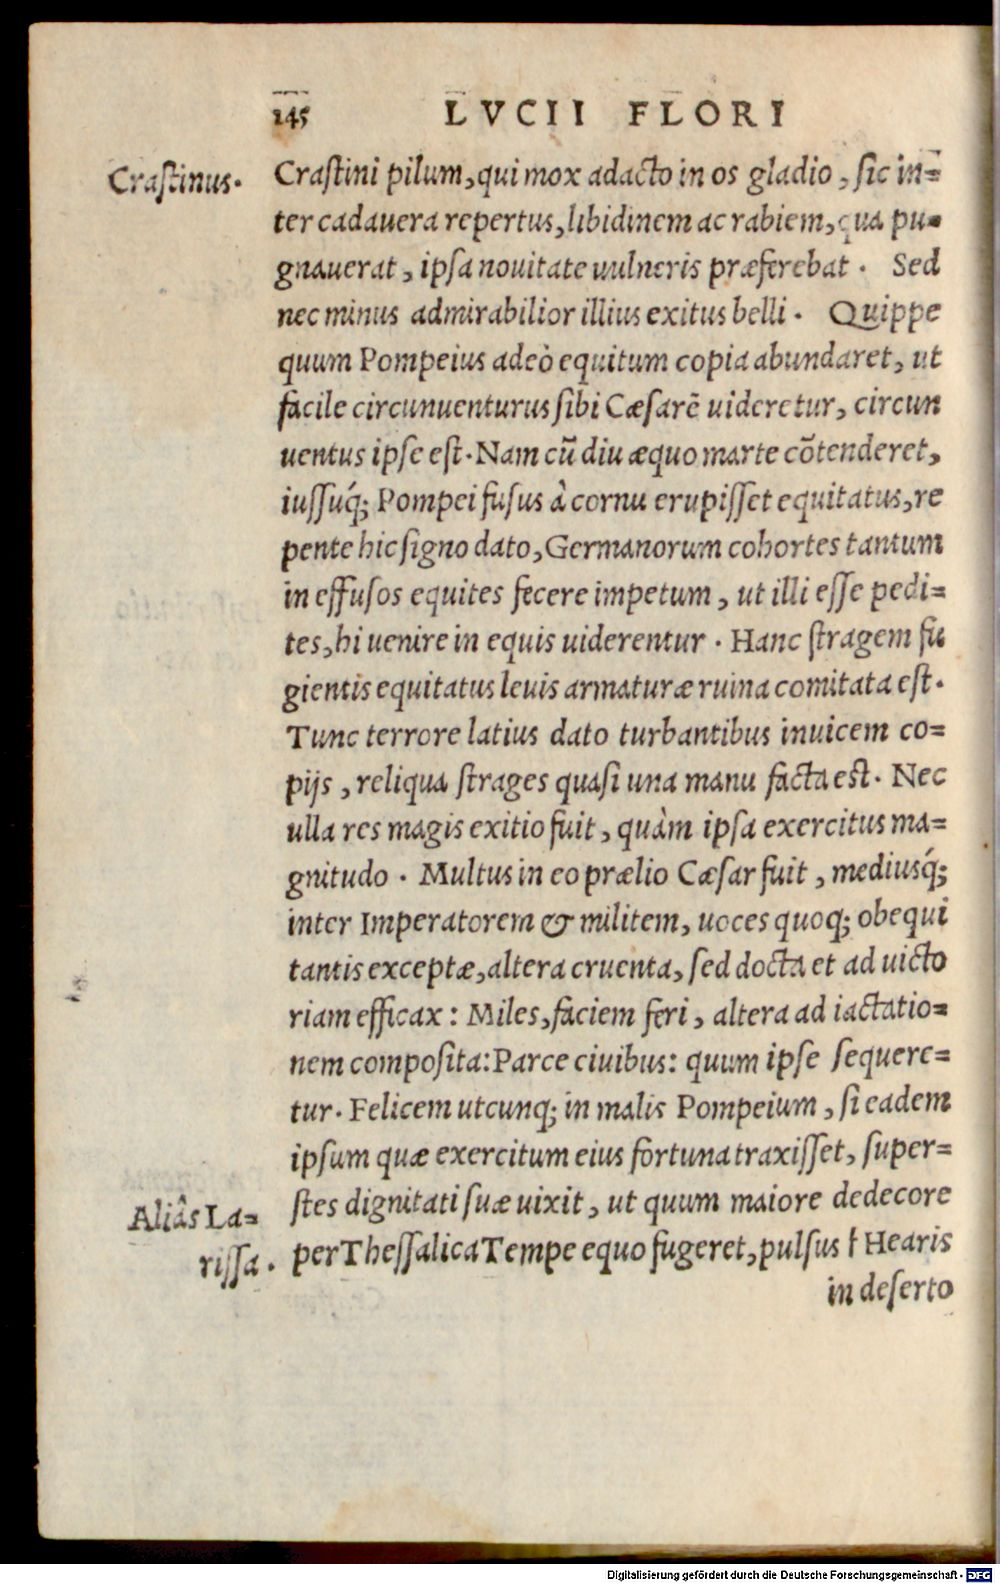 145 LVCII FLORI
Crastinus.
Crastini pilum, qui mox adacto in os gladio, sic in=
ter cadauera repertus, libidinem ac rabiem, qua pu=
gnauerat, ipsa nouitate uulneris præferebat. Sed
nec minus admirabilior illius exitus belli. Quippe
quum Pompeius adeò equitum copia abundaret, ut
facile circunuenturus sibi Cæsarē uideretur, circun
uentus ipse est. Nam cū diu æquo marte cōtenderet,
iussuq́; Pompei fusus à cornu erupisset equitatus, re
pente hic signo dato, Germanorum cohortes tantum
in effusos equites fecere impetum, ut illi esse pedi=
tes, hi uenire in equis uiderentur. Hanc stragem fu
gientis equitatus leuis armaturæ ruina comitata est.
Tunc terrore latius dato turbantibus inuicem co=
pijs, reliqua strages quasi una manu facta est. Nec
ulla res magis exitio fuit, quàm ipsa exercitus ma=
gnitudo. Multus in eo prælio Cæsar fuit, mediusq́;
inter Imperatorem & militem, uoces quoq; obequi
tantis exceptæ, altera cruenta, sed docta et ad uicto
riam efficax: Miles, faciem feri, altera ad iactatio=
nem composita: Parce ciuibus: quum ipse sequere=
tur. Felicem utcunq; in malis Pompeium, si eadem
ipsum quæ exercitum eius fortuna traxisset, super=
stes dignitati suæ uixit, ut quum maiore dedecore
Aliâs La=
rissa.
per Thessalica Tempe equo fugeret, pulsus † Hearis
in deserto
Digitalisierung gefördert durch die Deutsche Forschungsgemeinschaft - DFG